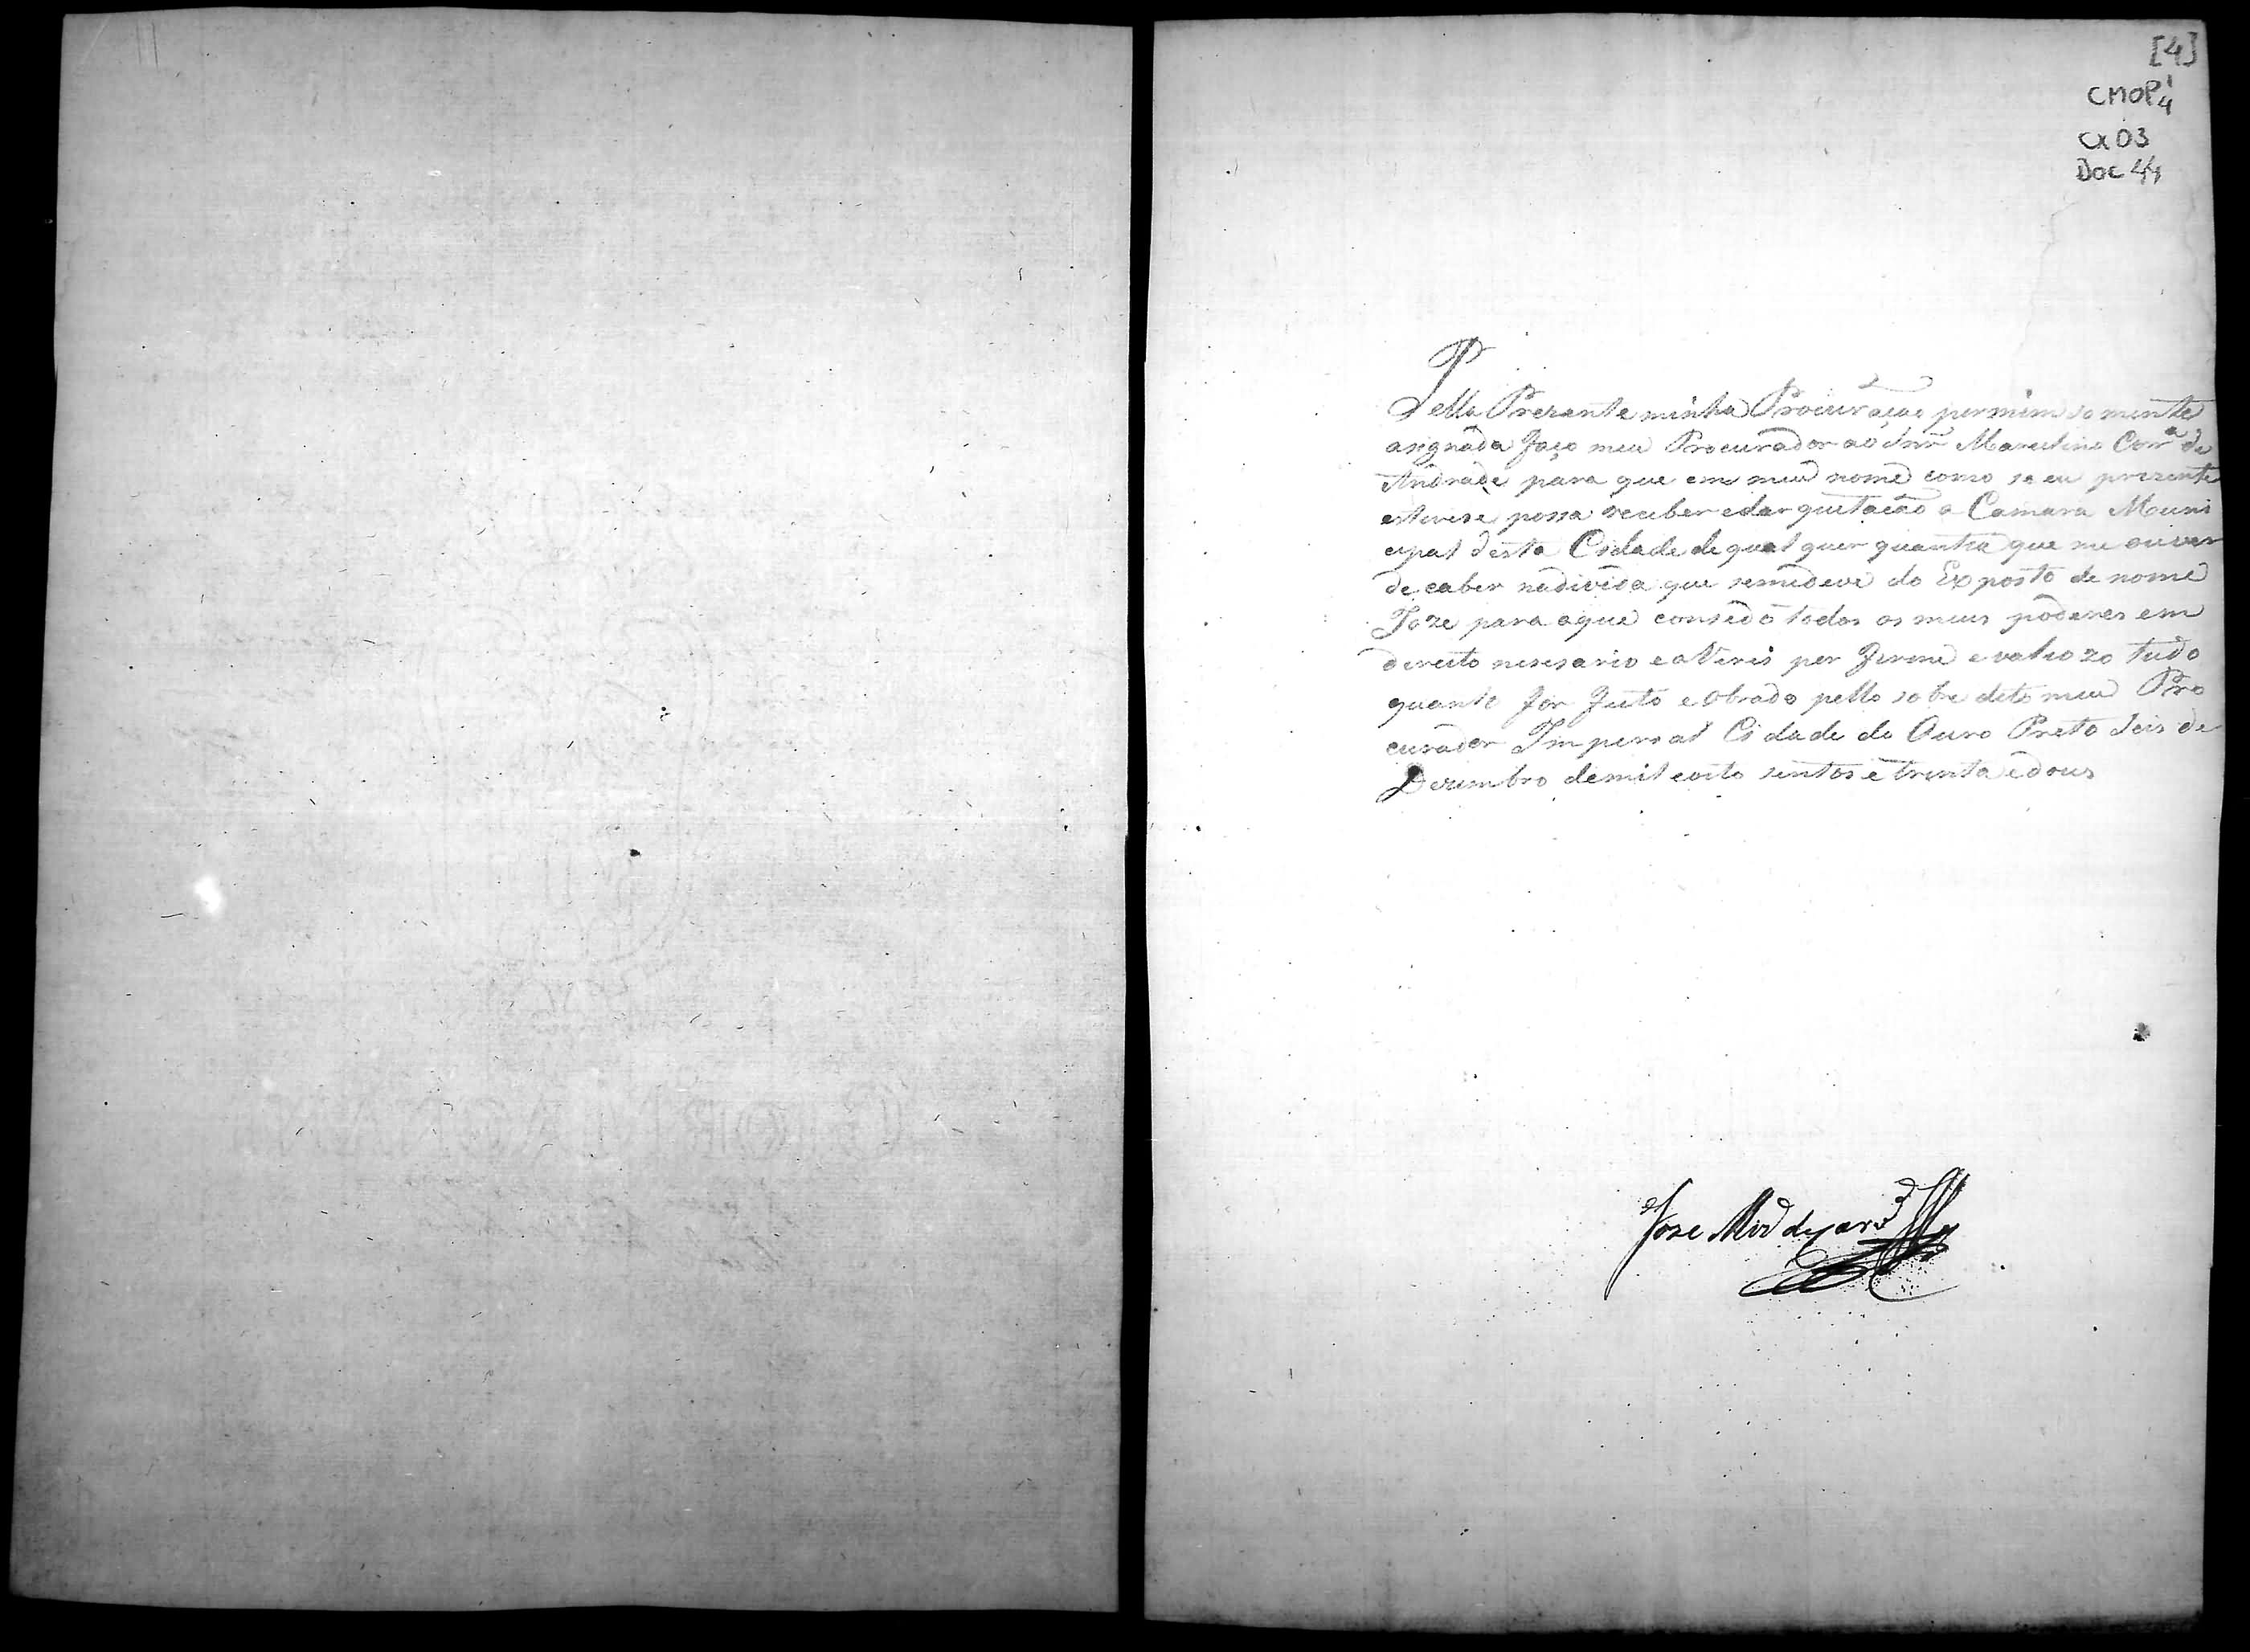 [4]
CMOP 1/4
CX 03
Doc 44
Pella Prezente minha Procuração por mim so mente
asignada faço meu Procurador ao Snr Marculino Corr.ª de
Andrade para que em meu nome como se eu prezente
estivese possa receber e dar quitacão a Camara Muni
cipal desta Cidade de qual quer quantia que me ouver
de caber na divida que se me deve do Exposto de nome
Joze para o que consedo todos os meus poderes em
direito nesesario e por firme e valiozo tudo
quanto for feito e obrado pello sobre dito meu Pro
curador Imperial Cidade do Ouro Preto Seis de
Dezembro de mil e oito sentos e trinta e dous
Joze